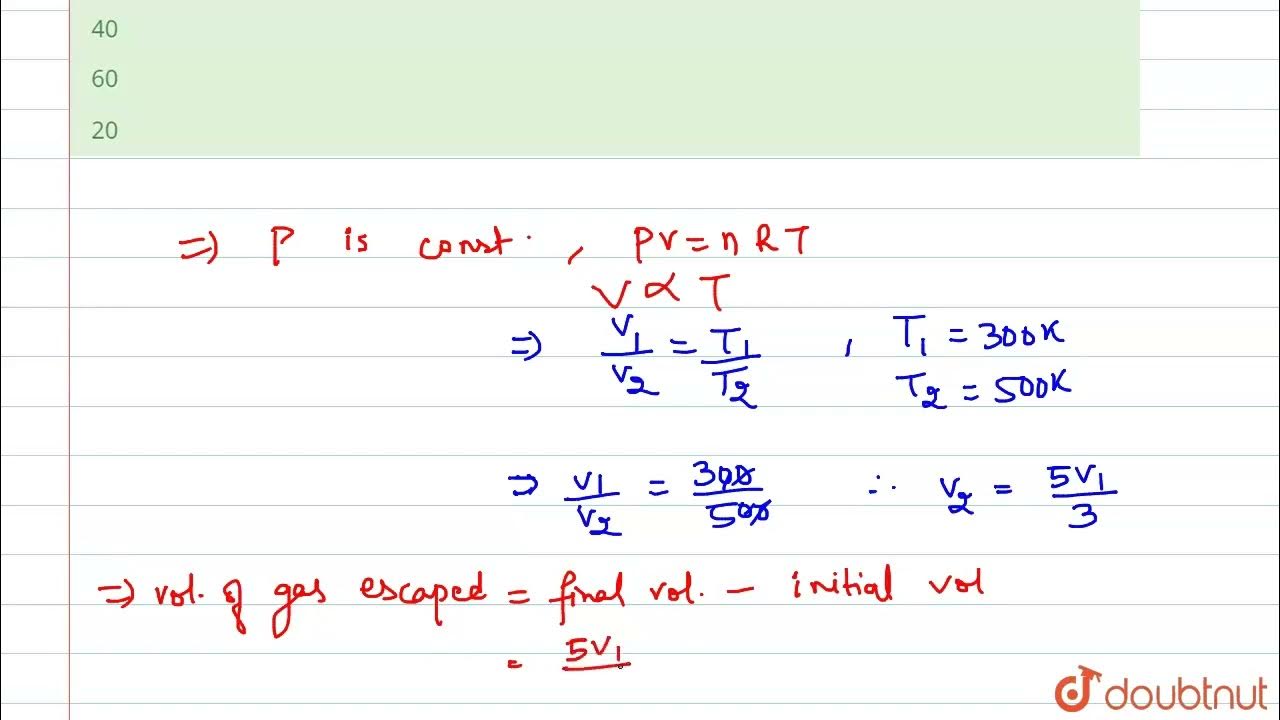 40
60
20
⇒ P is const. , PV = nRT
V ∝ T
⇒ V₁/V₂ = T₁/T₂ , T₁ = 300K
T₂ = 500K
⇒ V₁/V₂ = 300/500 ∴ V₂ = 5V₁/3
⇒ vol. of gas escaped = final vol. – initial vol
= 5V₁
doubtnut